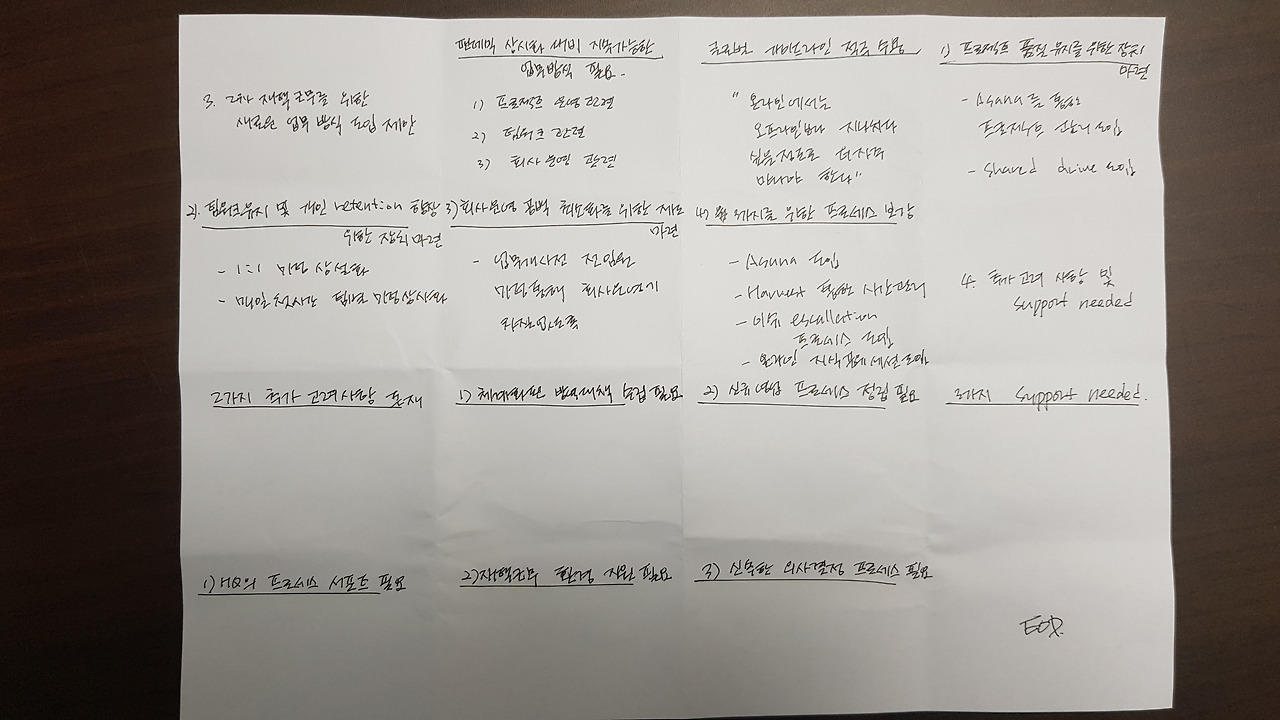 3. 2차 재택근무를 위한
새로운 업무 방식 도입 제안
팬데믹 상시화 대비 지속가능한
업무방식 필요.
1) 프로젝트 운영 관련
2) 팀워크 관련
3) 회사 운영 관련
글로벌 가이드라인 적극 수용
"온라인에서는
오프라인보다 지나치다
싶을 정도로 더 자주
만나야 한다"
1) 프로젝트 품질 유지를 위한 장치
마련
- Asana를 통한
프로젝트 관리 도입
- Shared drive 도입
2). 팀워크 유지 및 개인 retention 향상
위한 장치 마련
- 1:1 미팅 상설화
- 매일 첫시간 팀별 미팅 상시화
3) 회사운영 공백 최소화를 위한 제도
마련
- 업무개시전 전임원
미팅 통해 회사운영기
4) 3가지를 위한 프로세스 보강
- Asana 도입
- Harvest 통한 시간관리
- 이슈 escallation
프로세스 도입
- 온라인 지식공유세션 도입
4. 추가 고려 사항 및
support needed
2가지 추가 고려사항 존재
1) 체계화된 방역대책 수립 필요
2) 신규영입 프로세스 정립 필요
3가지 support needed.
1) HQ의 프로세스 서포트 필요
2) 재택근무 환경 지원 필요
3) 신속한 의사결정 프로세스 필요
EOD.